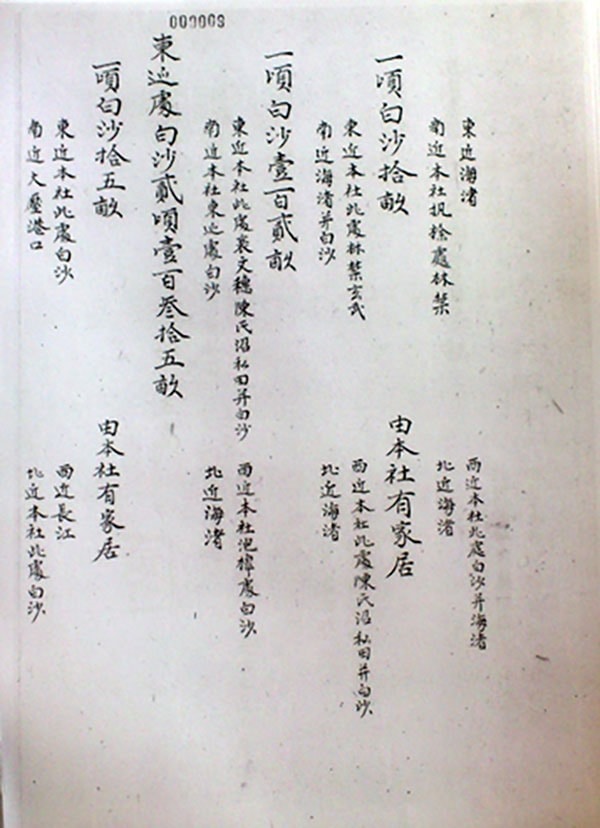 東近海渚 西近本社此處白沙并海渚
南近本社處林禁 北近海渚
一頃白沙拾畝 由本社有家居
東近本社此處林禁玄武 西近本社此處陳氏沼私田并白沙
南近海渚并白沙 北近海渚
一頃白沙壹百貳畝
東近本社此處裴文穗陳氏沼私田并白沙 西近本社池樟處白沙
南近本社東近處白沙 北近海渚
東近處白沙貳頃壹百叁拾五畝
一頃白沙拾五畝 由本社有家居
東近本社此處白沙 西近長江
南近大壓港口 北近本社此處白沙